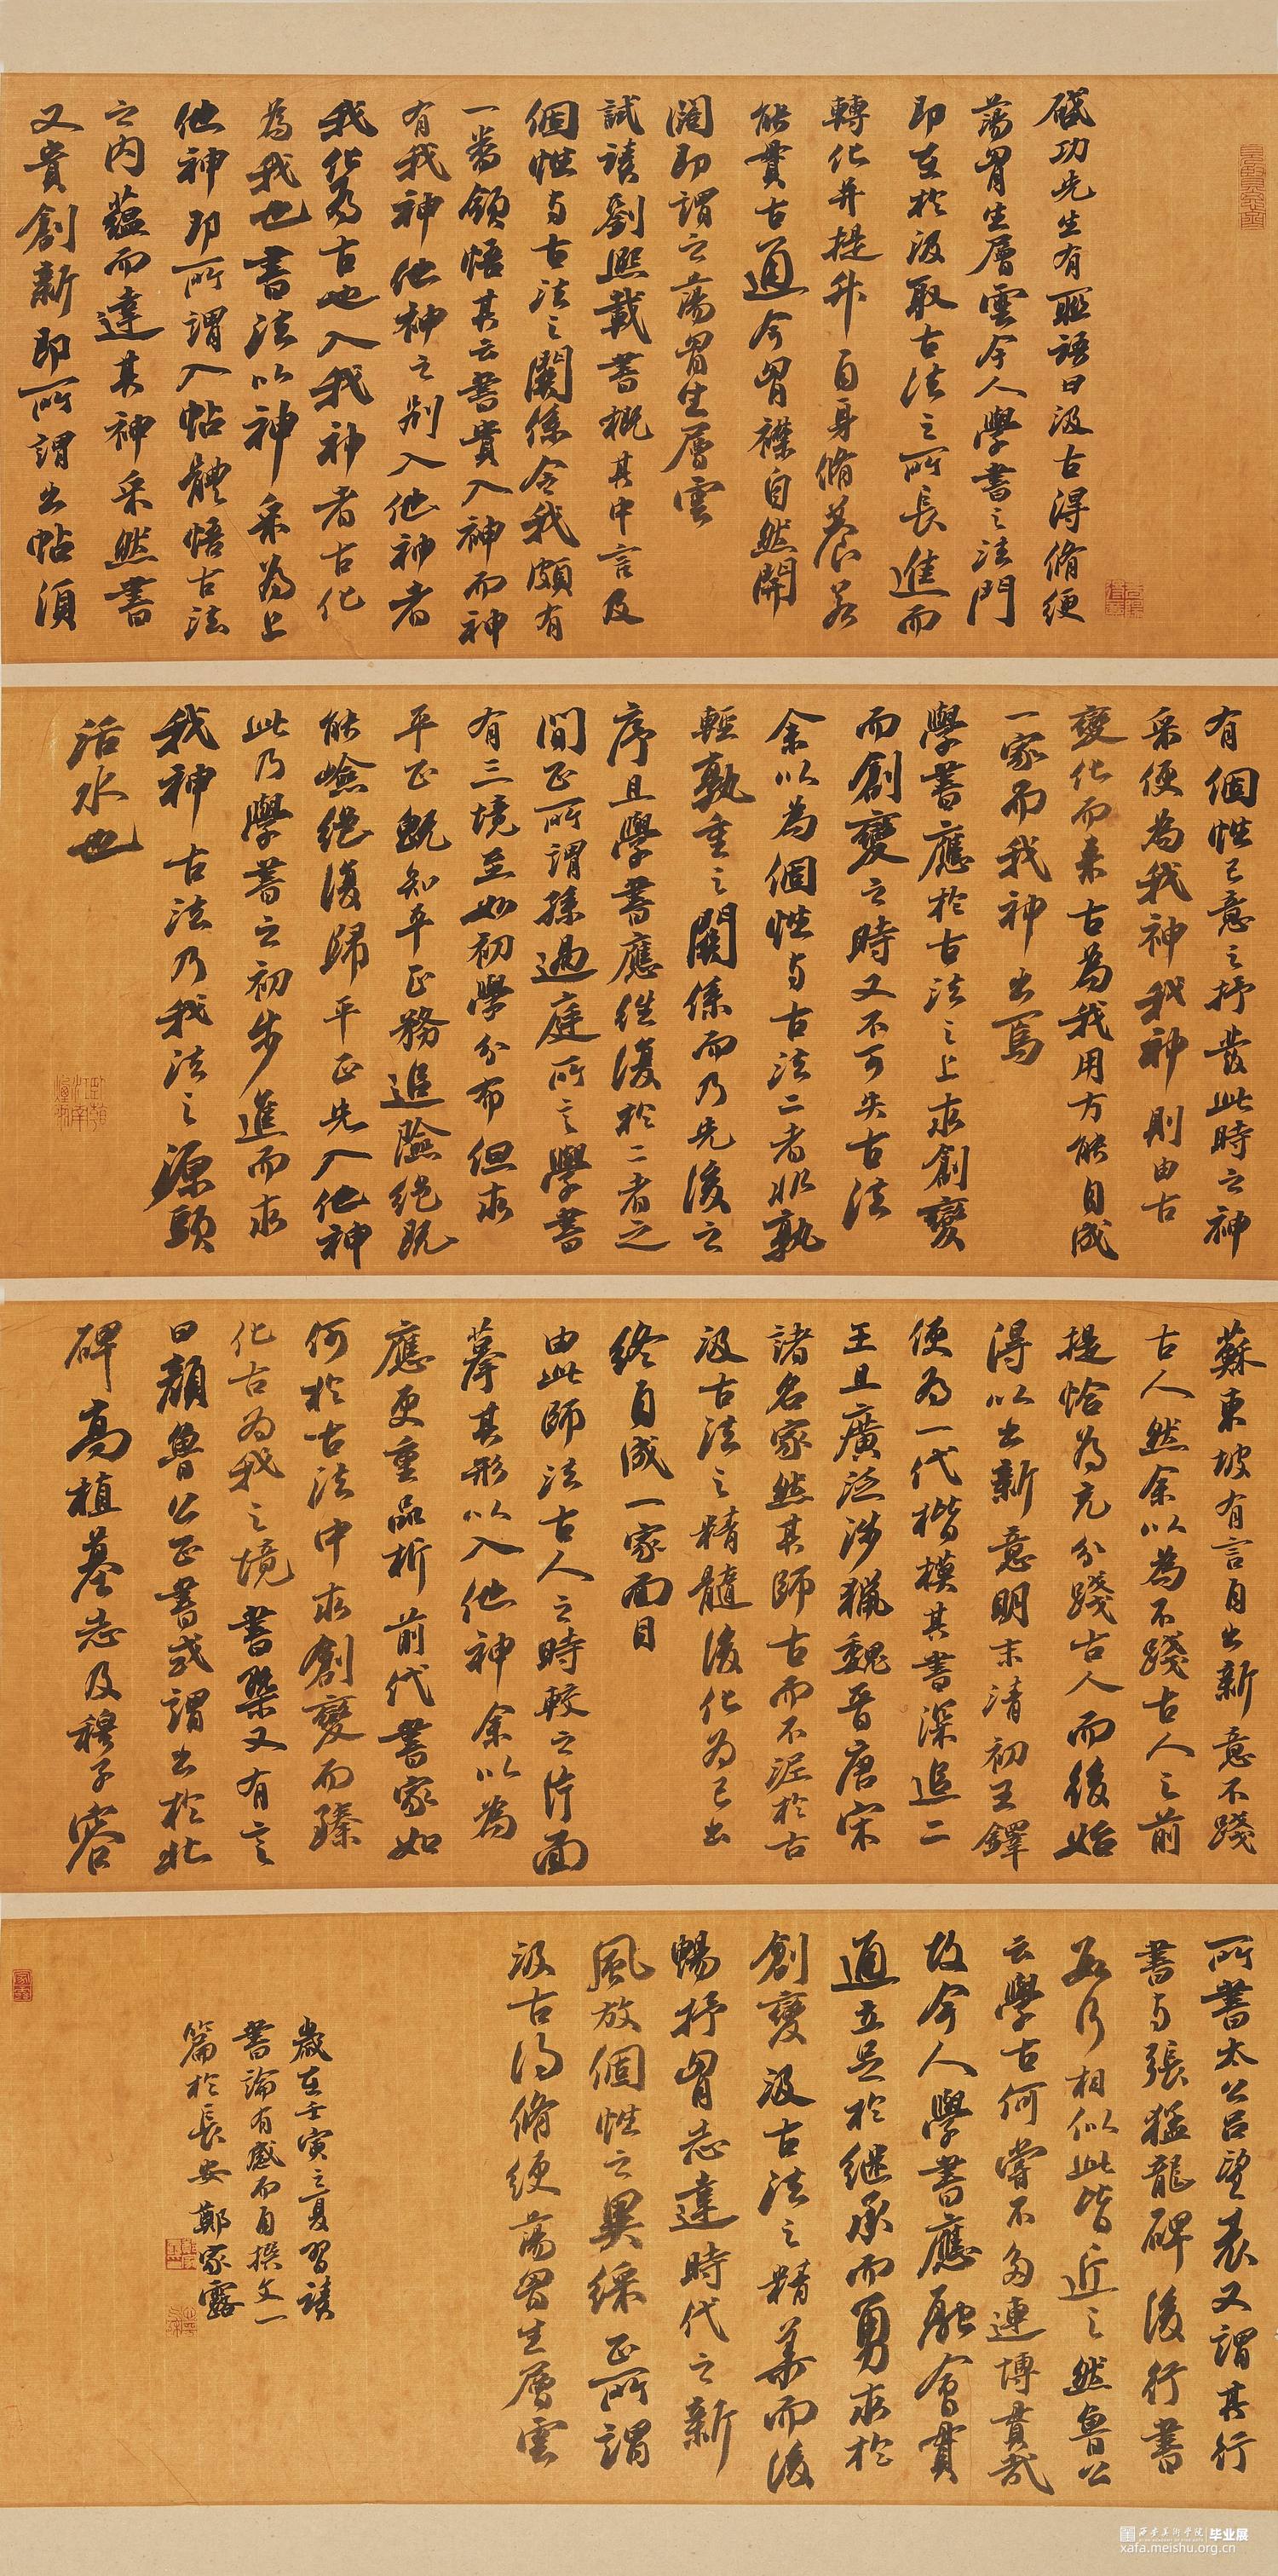 啟功先生有聯語曰汲古得脩綆
蕩胷生層雲今人學書之法門
即在於汲取古法之所長進而
轉化并提升自身脩養若
能貫古通今胷襟自然開
闊即謂之蕩胷生層雲
試讀劉熙載書概其中言及
個性与古法之關係令我頗有
一番領悟其云書貴入神而神
有我神他神之别入他神者
我化為古也入我神者古化
為我也書法以神采為上
他神即所謂入帖體悟古法
之内蘊而達其神采然書
又貴創新即所謂出帖須
有個性己意之抒發此時之神
采便為我神我神則由古
變化而來古為我用方能自成
一家而我神出焉
學書應於古法之上求創變
而創變之時又不可失古法
余以為個性与古法二者非孰
輕孰重之關係而乃先後之
序且學書應往復於二者之
間正所謂孫過庭所言學書
有三境至如初學分布但求
平正既知平正務追險絕既
能險絕復歸平正先入他神
此乃學書之初步進而求
我神古法乃我法之源頭
活水也
蘇東坡有言自出新意不踐
古人然余以為不踐古人之前
提恰為充分踐古人而後始
得以出新意明末清初王鐸
便為一代楷模其書深追二
王且廣泛涉獵魏晉唐宋
諸名家然其師古而不泥於古
汲古法之精髓後化為己出
終自成一家面目
由此師法古人之時較之片面
摹其形以入他神余以為
應更重品析前代書家如
何於古法中求創變而臻
化古為我之境書概又有言
曰顏魯公正書或謂出於北
碑高植墓志及穆子容
所書太公呂望表又謂其行
書与張猛龍碑後行書
數行相似此皆近之然魯公
云學古何嘗不多連博貫哉
故今人學書應融會貫
通立足於繼承而勇求於
創變汲古法之精華而後
暢抒胷志達時代之新
風放個性之異綵正所謂
汲古得脩綆蕩胷生層雲
歲在壬寅之夏習讀
書論有感而自撰文一
篇於長安鄭家露
西安美術學院 毕业展
xafa.meishu.org.cn